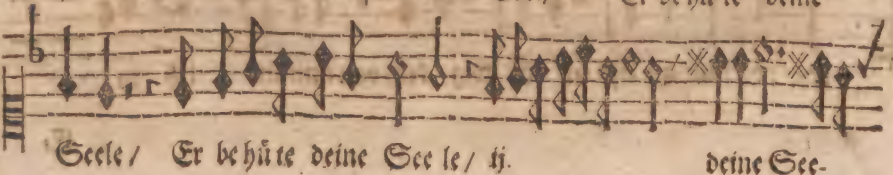 Er behüte deine
Seele/ Er behüte deine See le/ ij. deine See-